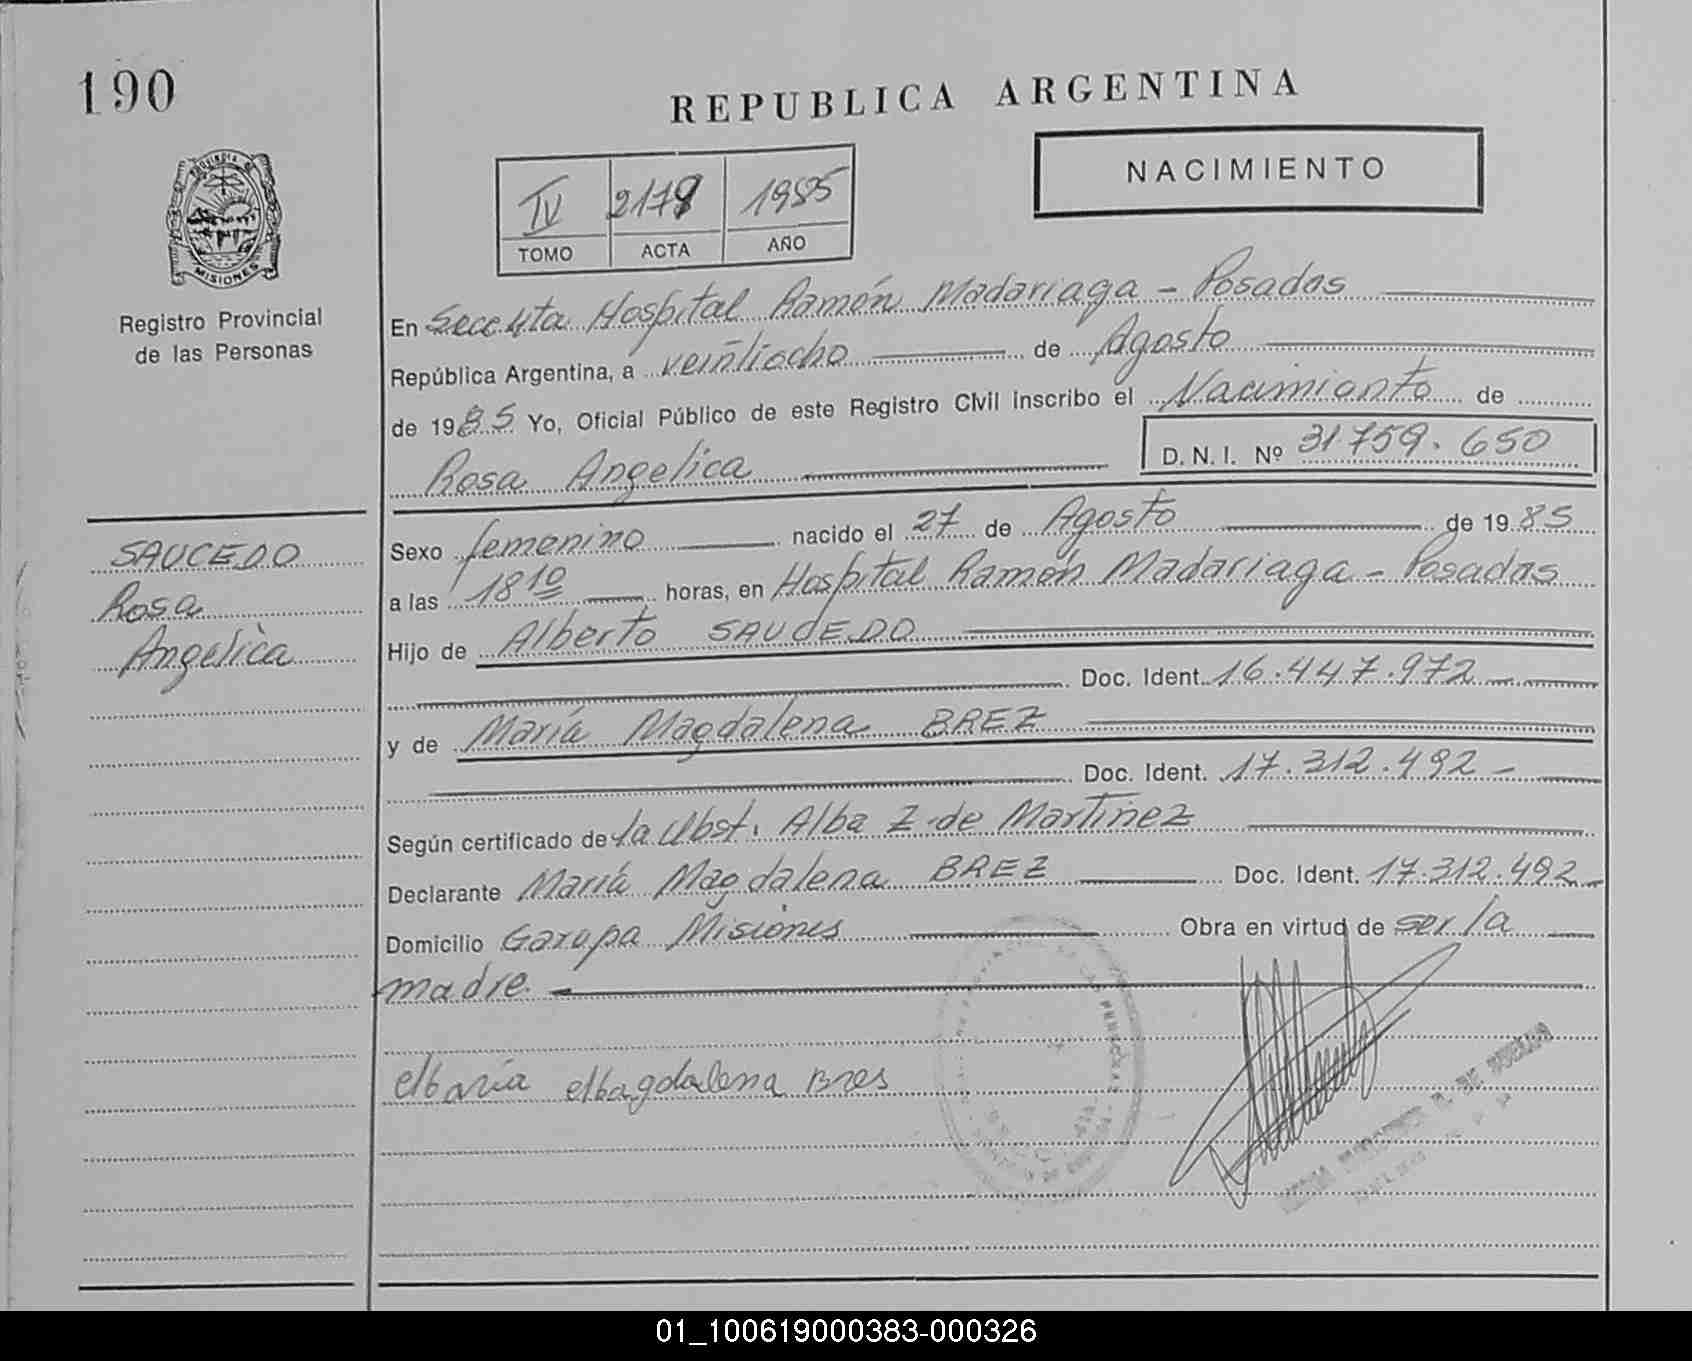 190
REPUBLICA ARGENTINA
NACIMIENTO
IV 2178 1985
TOMO ACTA AÑO
PROVINCIA DE
MISIONES
Registro Provincial
de las Personas
En Secc 4ta Hospital Ramón Madariaga - Posadas
República Argentina, a veintiocho de Agosto
de 1985 Yo, Oficial Público de este Registro Civil inscribo el Nacimiento de
Rosa Angelica D. N. I. Nº 31.759.650
SAUCEDO
Rosa
Angelica
Sexo femenino nacido el 27 de Agosto de 1985
a las 18 10 horas, en Hospital Ramón Madariaga - Posadas
Hijo de Alberto SAUCEDO
Doc. Ident. 16.447.972
y de María Magdalena BREZ
Doc. Ident. 17.312.492 -
Según certificado de la Obst. Alba Z. de Martinez
Declarante María Magdalena BREZ Doc. Ident. 17.312.492
Domicilio Garupa Misiones Obra en virtud de ser la
madre.
María Magdalena Bres
01_100619000383-000326